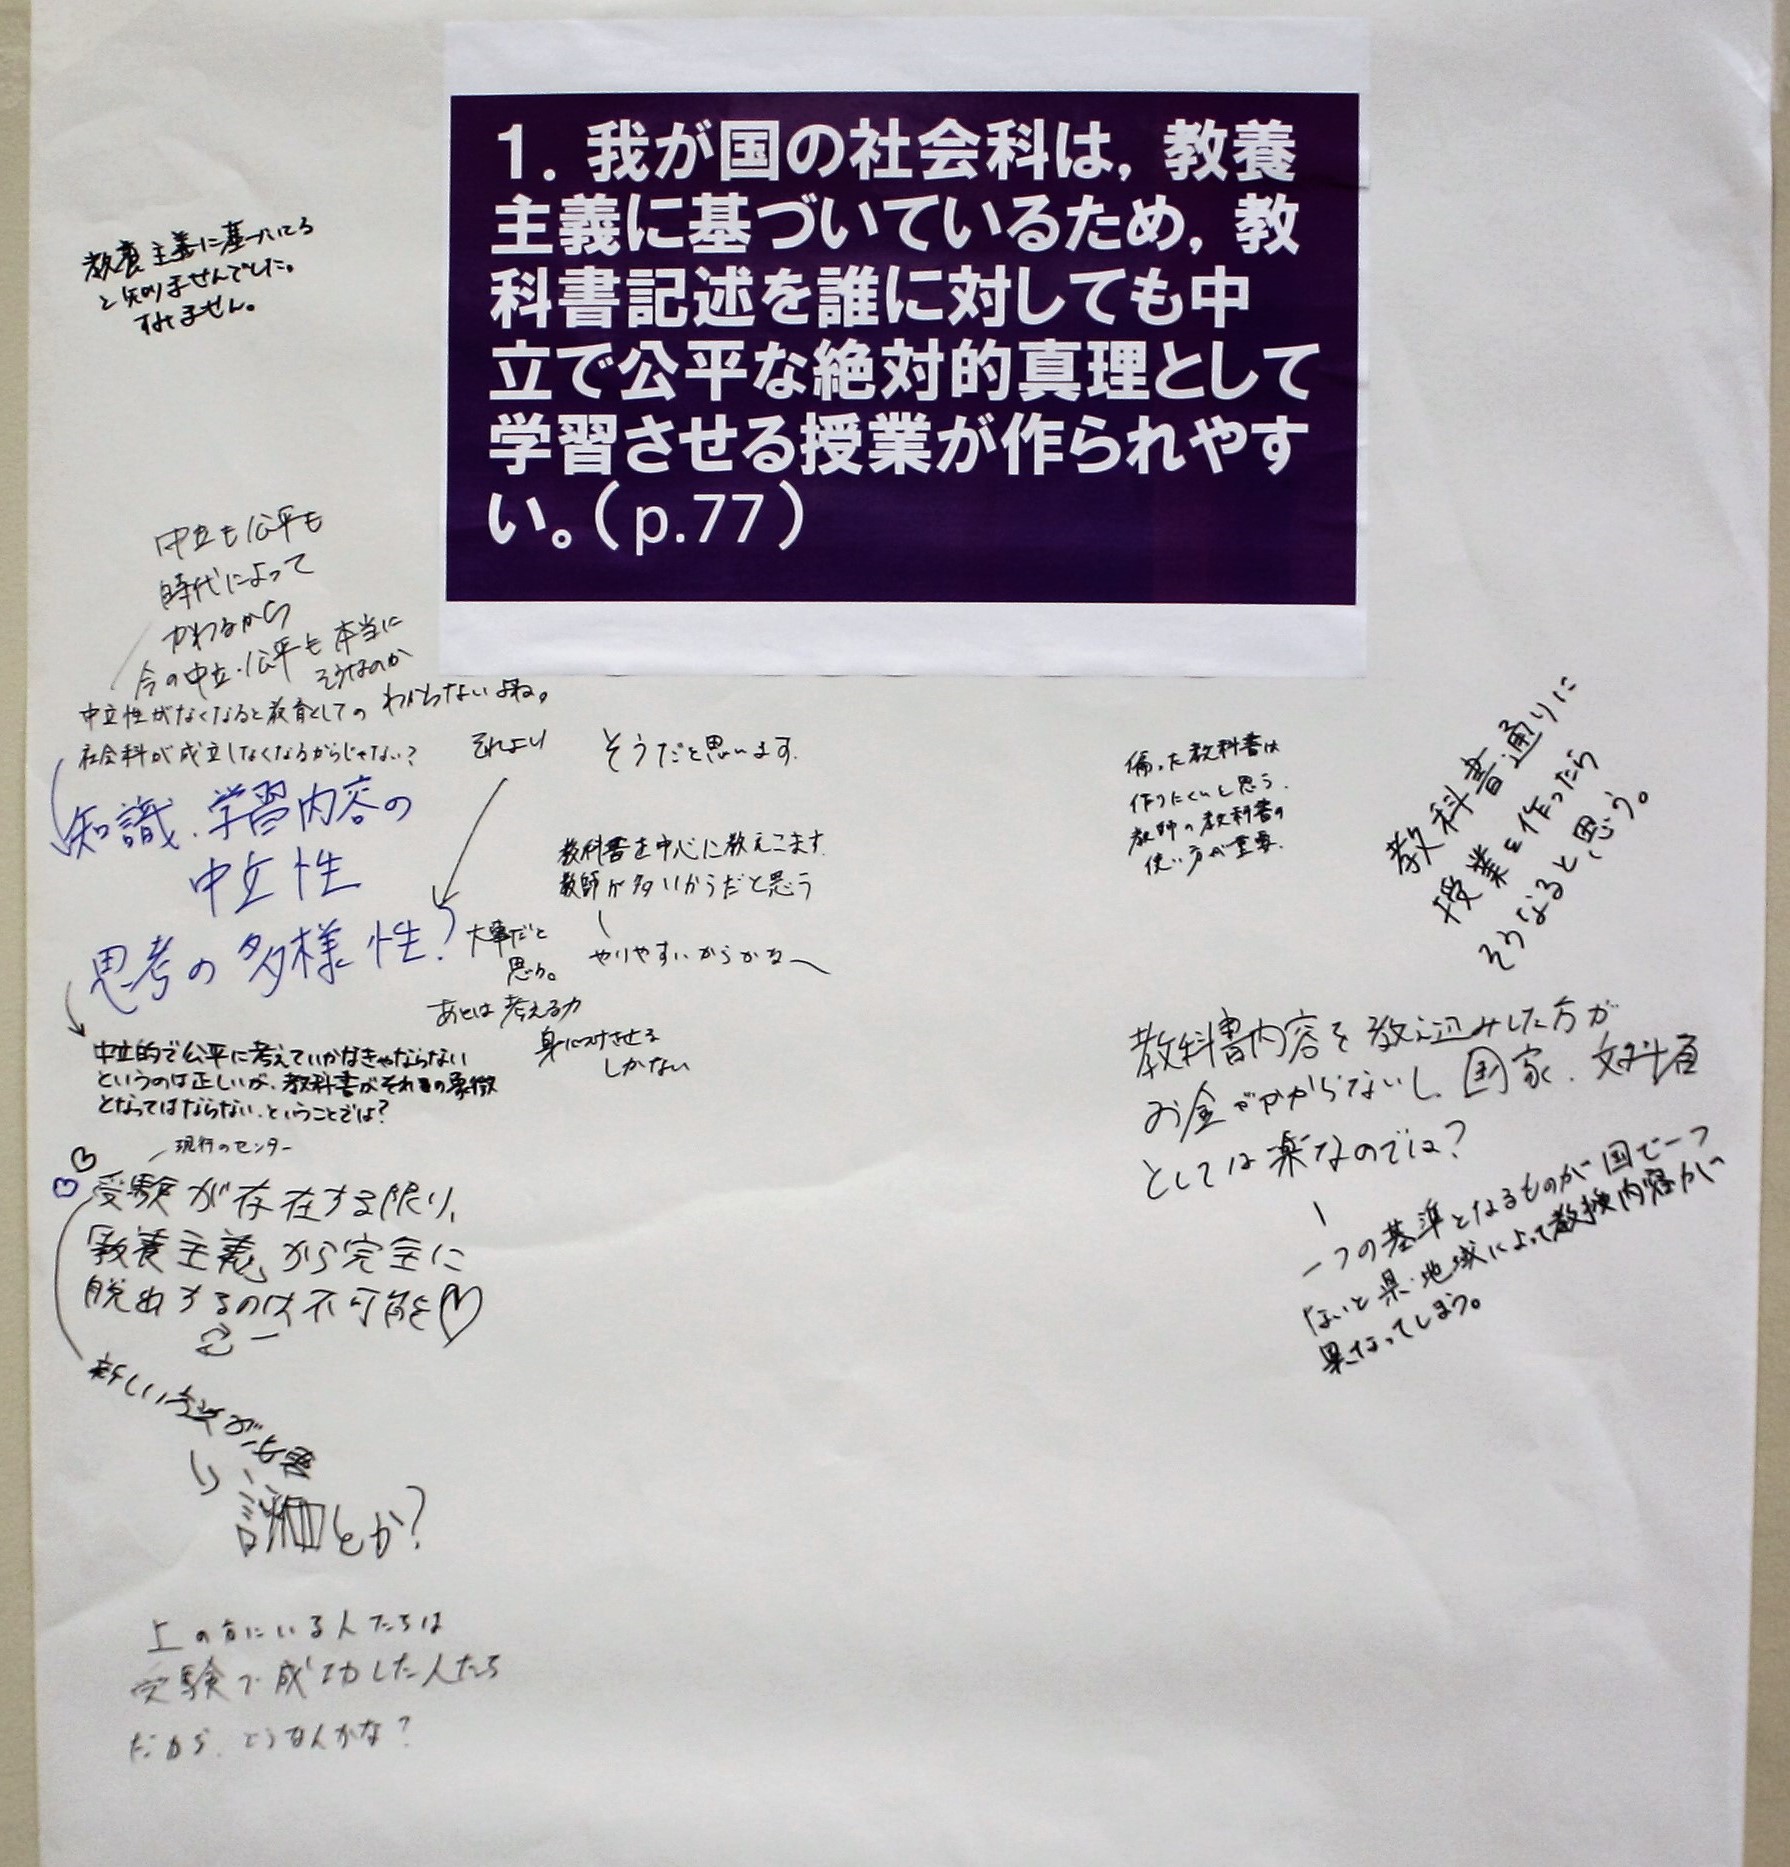 1. 我が国の社会科は, 教養
主義に基づいているため, 教
科書記述を誰に対しても中
立で公平な絶対的真理として
学習させる授業が作られやす
い。(p.77)
教養主義に基づいてる
と知りませんでした。
すみません。
中立も公平も
時代によって
かわるから
今の中立・公平も本当に
そうなのか
わからないよね。
中立性がなくなると教育としての
社会科が成立しなくなるからじゃない?
それより
知識、学習内容の
中立性
思考の多様性?
大事だと
思う。
あとは考える力
身につけさせる
しかない
中立的で公平に考えていかなきゃならない
というのは正しいが、教科書がそれらの象徴
となってはならない、ということでは?
現行のセンター
受験が存在する限り、
「教養主義」から完全に
脱出するのは不可能を♡
新しい方法が必要
評価とか?
上の方にいる人たちは
受験で成功した人たち
だから、どうなんかな?
そうだと思います.
教科書を中心に教えこます
教師が多いからだと思う
やりやすいからかなー
偏った教科書は
作りにくいと思う.
教師の教科書の
使い方が重要.
教科書通りに
授業を作ったら
そうなると思う。
教科書内容を教え込みした方が
お金がかからないし、国家、文科省
としては楽なのでは?
一つの基準となるものが国で一つ
ないと県・地域によって教授内容が
異なってしまう。